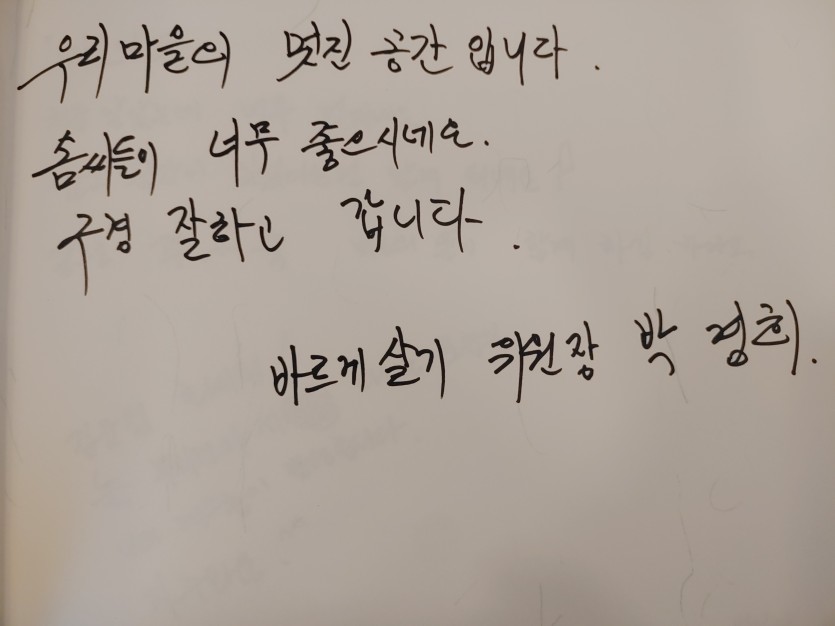 우리마을의 멋진 공간 입니다.
솜씨들이 너무 좋으시네요.
구경 잘하고 갑니다.
바르게살기 위원장 박 경희.